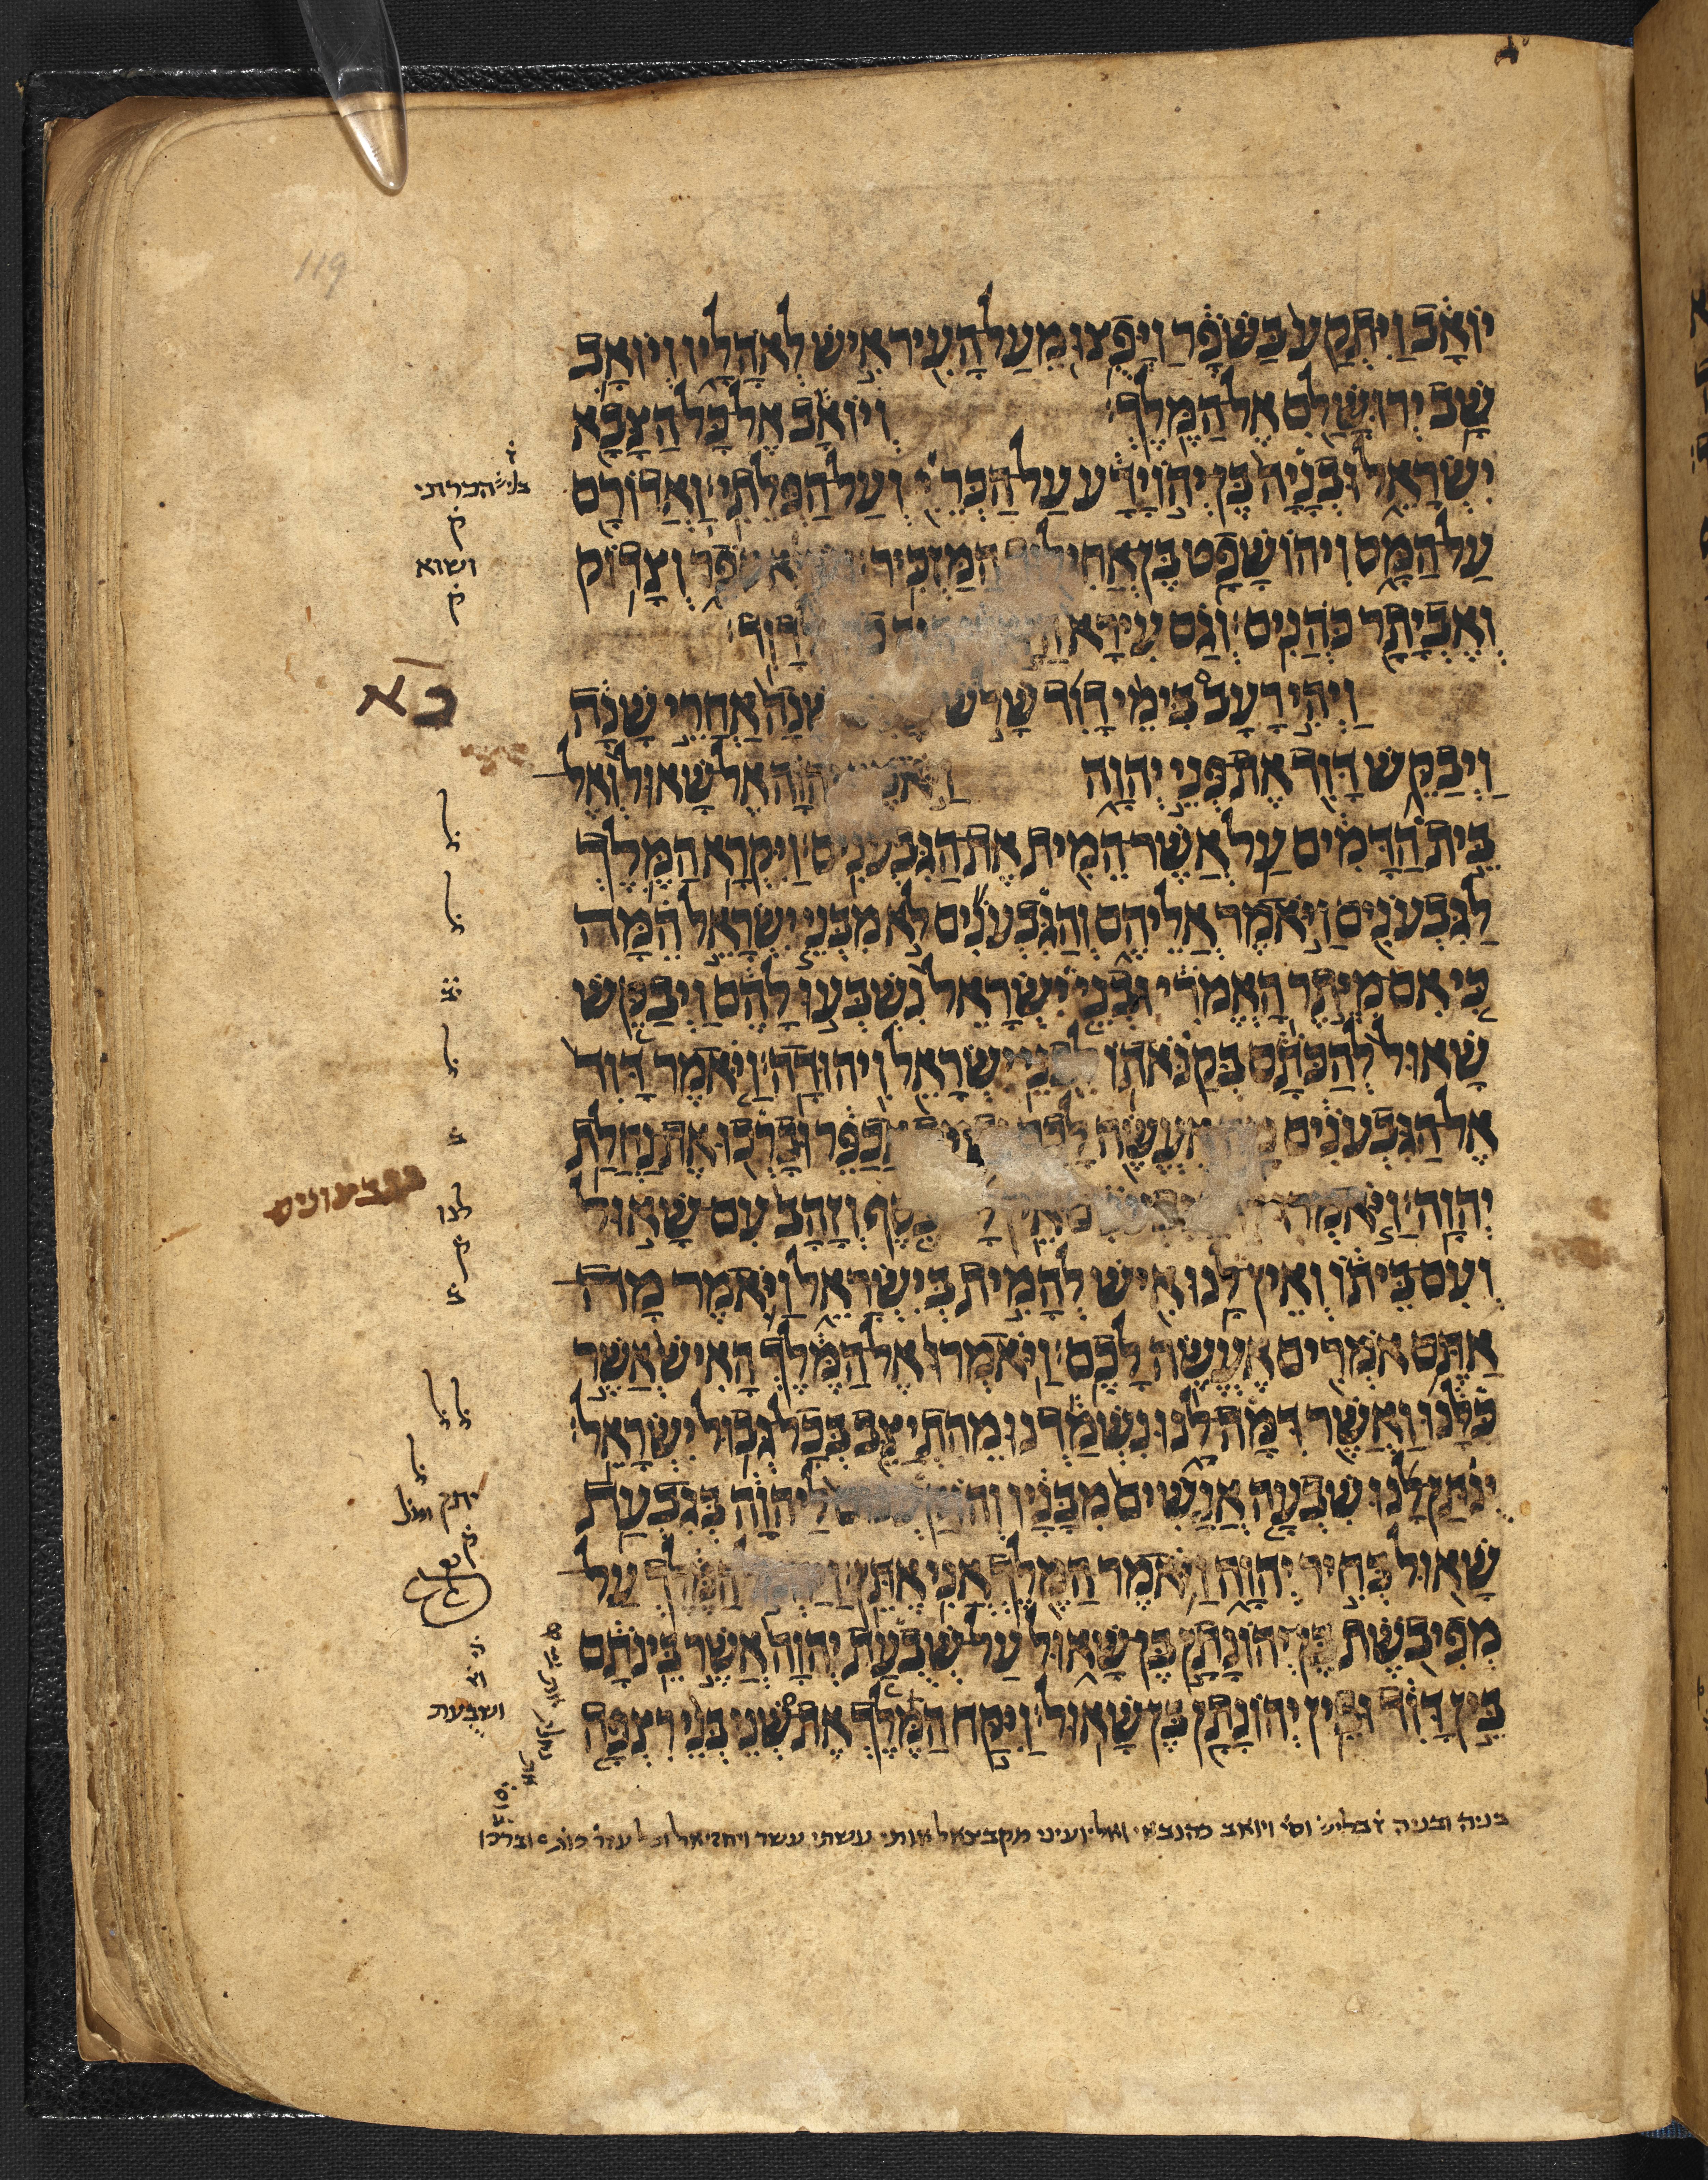 119
יוֹאָב וַיִּתְקַע בַּשֹּׁפָר וַיָּפֻצוּ מֵעַל הָעִיר אִישׁ לְאֹהָלָיו וְיוֹאָב
שָׁב יְרוּשָׁלַם אֶל הַמֶּלֶךְ׃ וְיוֹאָב אֶל כָּל הַצָּבָא
יִשְׂרָאֵל וּבְנָיָה בֶּן יְהוֹיָדָע עַל הַכְּרֵיּ וְעַל הַפְּלֵתִי׃ וַאֲדוֹרָם
בליש הכרתי
ק
עַל הַמַּס וִיהוֹשָׁפָט בֶּן אֲחִילוּד הַמַּזְכִּיר׃ סֹפֵר וְצָדוֹק
ושוא
ק
וְאֶבְיָתָר כֹּהֲנִים׃ וְגַם עִירָא לְדָוִד׃
כא
וַיְהִי רָעָב בִּימֵי דָוִד שָׁלֹשׁ שָׁנָה אַחֲרֵי שָׁנָה
וַיְבַקֵּשׁ דָּוִד אֶת פְּנֵי יְהוָה יְהוָה אֶל שָׁאוּל וְאֶל
בֵּית הַדָּמִים עַל אֲשֶׁר הֵמִית אֶת הַגִּבְעֹנִים׃ וַיִּקְרָא הַמֶּלֶךְ
לַגִּבְעֹנִים וַיֹּאמֶר אֲלֵיהֶם וְהַגִּבְעֹנִים לֹא מִבְּנֵי יִשְׂרָאֵל הֵמָּה
כִּי אִם מִיֶּתֶר הָאֱמֹרִי וּבְנֵי יִשְׂרָאֵל נִשְׁבְּעוּ לָהֶם וַיְבַקֵּשׁ
שָׁאוּל לְהַכֹּתָם בְּקַנֹּאתוֹ לִבְנֵי יִשְׂרָאֵל וִיהוּדָה׃ וַיֹּאמֶר דָּוִד
אֶל הַגִּבְעֹנִים אֶעֱשֶׂה לָכֶם אֲכַפֵּר וּבָרְכוּ אֶת נַחֲלַת
הגבעונים
יְהוָה׃ וַיֹּאמְרוּ כֶּסֶף וְזָהָב עִם שָׁאוּל
לנו
ק
וְעִם בֵּיתוֹ וְאֵין לָנוּ אִישׁ לְהָמִית בְּיִשְׂרָאֵל וַיֹּאמֶר מָה
אַתֶּם אֹמְרִים אֶעֱשֶׂה לָכֶם׃ וַיֹּאמְרוּ אֶל הַמֶּלֶךְ הָאִישׁ אֲשֶׁר
כִּלָּנוּ וַאֲשֶׁר דִּמָּה לָנוּ נִשְׁמַדְנוּ מֵהִתְיַצֵּב בְּכָל גְּבוּל יִשְׂרָאֵל׃
יֻנְתַּן לָנוּ שִׁבְעָה אֲנָשִׁים מִבָּנָיו לַיהוָה בְּגִבְעַת
יתן
ק
שָׁאוּל בְּחִיר יְהוָה וַיֹּאמֶר הַמֶּלֶךְ אֲנִי אֶתֵּן׃ הַמֶּלֶךְ עַל
מְפִיבֹשֶׁת בֶּן יְהוֹנָתָן בֶּן שָׁאוּל עַל שְׁבֻעַת יְהוָה אֲשֶׁר בֵּינֹתָם
בֵּין דָּוִד וּבֵין יְהוֹנָתָן בֶּן שָׁאוּל׃ וַיִּקַּח הַמֶּלֶךְ אֶת שְׁנֵי בְּנֵי רִצְפָּה
ושבעת
בניה ובניה ויואב ואליועיני מקבצאל עשתי עשר ויחזיאל וברכו